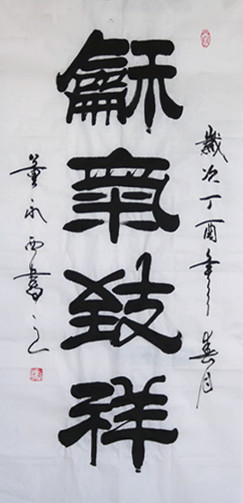 歲次丁酉年春月
龢氣致祥
董永西書之